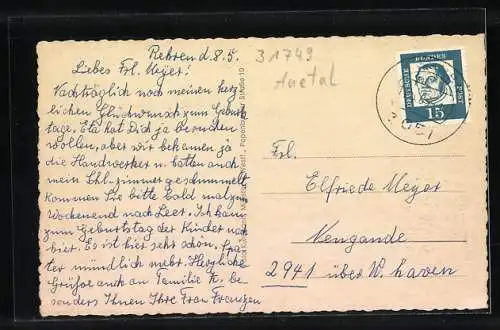 Rehren d. 8.5.
Liebes Frl. Meyer!
Nachträglich noch meinen herz
lichen Glückwunsch zum Geburts
tage. Eta hat Dich ja besuchen
wollen, aber wir bekamen ja
die Handwerker u. hatten auch
mein Schl. zimmer
Kommen Sie bitte bald mal zum
Wochenend nach Leer. Ich kam
zum Geburtstag der Kinder nach
hier. Es ist hier sehr schön. Spä
ter mündlich mehr. Herzliche
Grüße auch an Familie K. be
sonders Ihnen Ihre Frau Franzen
31749
Auetal
DEUTSCHE BUNDESPOST
15
Frl.
Elfriede Meyer
Nengande
2941 über W. haven